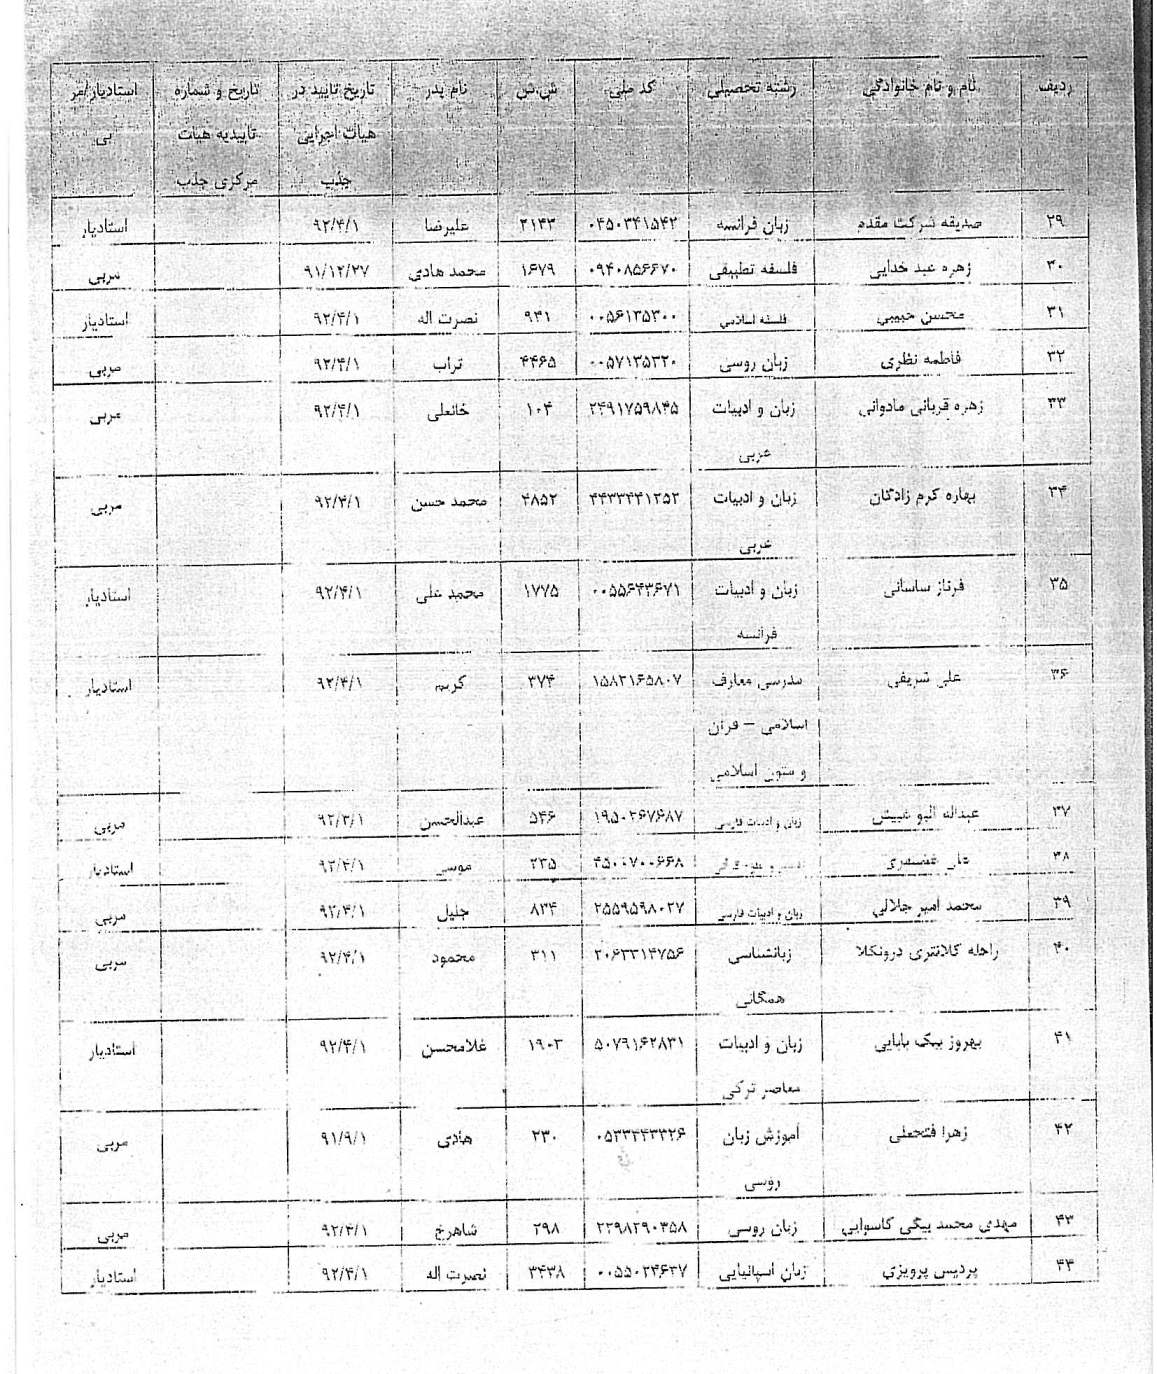 ردیف نام و نام خانوادگی رشته تحصیلی کد ملی ش.ش نام پدر تاریخ تایید در تاریخ و شماره استادیار/مر
هیات اجرایی تاییدیه هیات بی
جذب مرکزی جذب
۲۹ صدیقه شرکت مقدم زبان فرانسه ۰۴۵۰۳۴۱۵۴۲ ۲۱۴۳ علیرضا ۹۲/۴/۱ استادیار
۳۰ زهره عبد خدایی فلسفه تطبیقی ۰۹۴۰۸۵۶۶۷۰ ۱۶۷۹ محمد هادی ۹۱/۱۲/۲۷ مربی
۳۱ محسن حبیبی فلسفه اسلامی ۰۰۵۶۱۳۵۳۰۰ ۹۳۱ نصرت اله ۹۲/۴/۱ استادیار
۳۲ فاطمه نظری زبان روسی ۰۰۵۷۱۳۵۳۲۰ ۴۴۶۵ تراب ۹۲/۴/۱ مربی
۳۳ زهره قربانی مادوانی زبان و ادبیات ۲۴۹۱۷۵۹۸۴۵ ۱۰۴ خانعلی ۹۲/۴/۱ مربی
عربی
۳۴ بهاره کرم زادگان زبان و ادبیات ۴۴۳۳۴۴۱۲۵۲ ۴۸۵۲ محمد حسن ۹۲/۴/۱ مربی
عربی
۳۵ فرناز ساسانی زبان و ادبیات ۰۰۵۵۶۴۳۶۷۱ ۱۷۷۵ محمد علی ۹۲/۴/۱ استادیار
فرانسه
۳۶ علی شریفی مدرسی معارف ۱۵۸۲۱۶۵۸۰۷ ۳۷۴ کریم ۹۲/۴/۱ استادیار
اسلامی – قرآن
و متون اسلامی
۳۷ عبداله البو غبیش زبان و ادبیات فارسی ۱۹۵۰۲۶۷۶۸۷ ۵۴۶ عبدالحسن ۹۲/۳/۱ مربی
۳۸ علی ۴۵۰۰۷۰۰۶۶۸ ۲۳۵ موسی ۹۲/۴/۱ استادیار
۳۹ محمد امیر جلالی زبان و ادبیات فارسی ۲۵۵۹۵۹۸۰۲۷ ۸۳۴ جلیل ۹۲/۴/۱ مربی
۴۰ راحله کلانتری درونکلا زبانشناسی ۲۰۶۳۳۱۴۷۵۶ ۳۱۱ محمود ۹۲/۴/۱ مربی
همگانی
۴۱ بهروز بیک بابایی زبان و ادبیات ۵۰۷۹۱۶۲۸۳۱ ۱۹۰۳ غلامحسن ۹۲/۴/۱ استادیار
معاصر ترکی
۴۲ زهرا فتحعلی آموزش زبان ۰۵۳۳۴۴۳۳۲۶ ۲۳۰ هادی ۹۱/۹/۱ مربی
روسی
۴۳ مهدی محمد بیگی کاسوایی زبان روسی ۲۲۹۸۲۹۰۳۵۸ ۲۹۸ شاهرخ ۹۲/۴/۱ مربی
۴۴ پردیس پرویزی زبان اسپانیایی ۰۰۵۵۰۲۴۶۳۷ ۳۴۳۸ نصرت اله ۹۲/۴/۱ استادیار